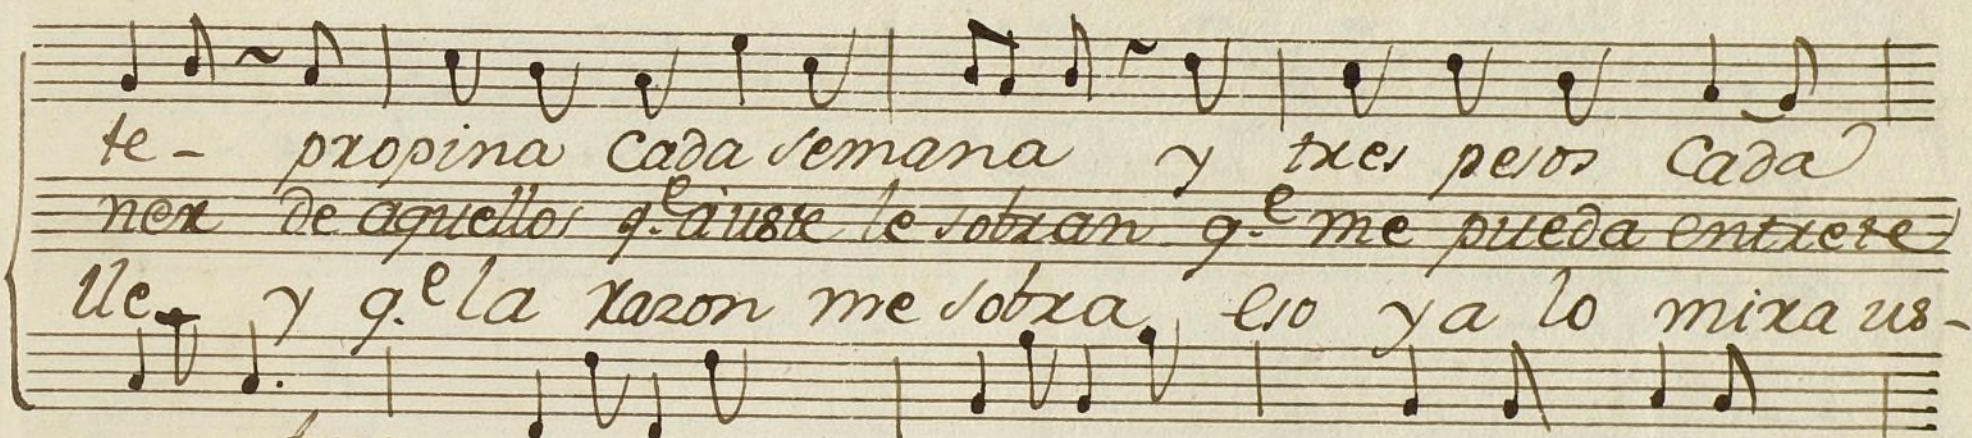 te- propina cada semana y tres pesos cada
ner de aquellos q.e à uste le sobran q.e me pueda entrete
lle y q.e la razon me sobra eso ya lo mira us-